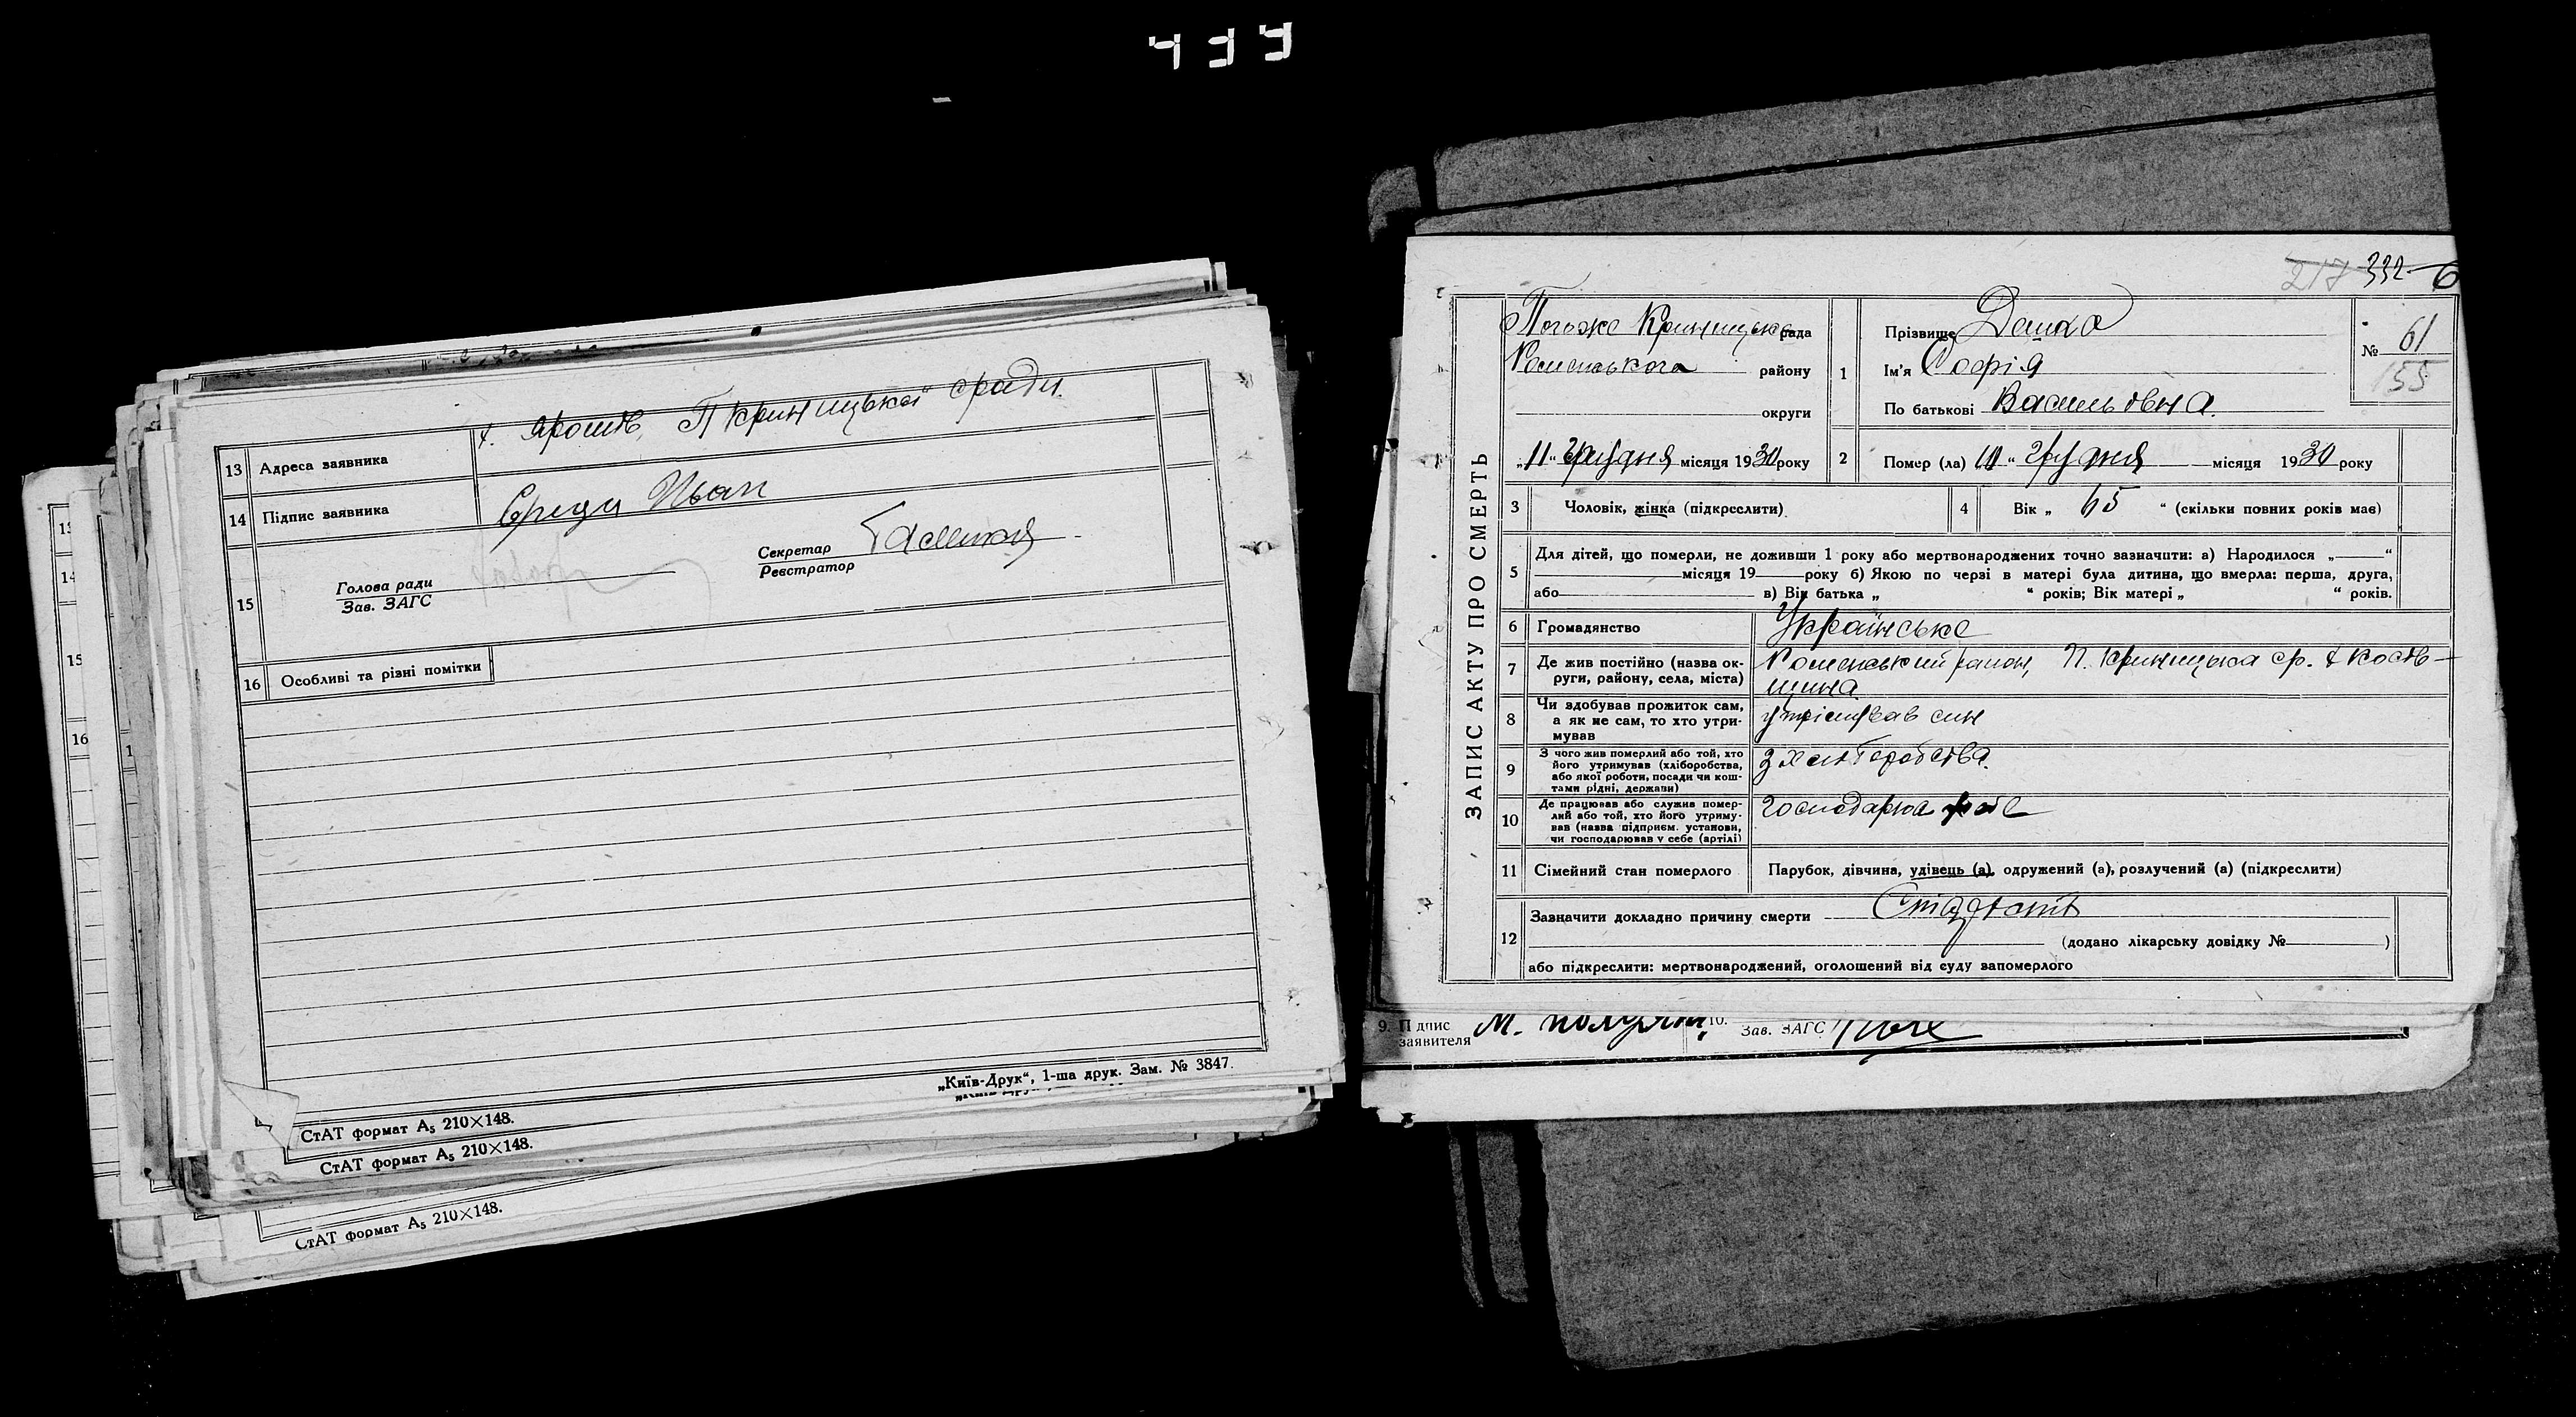 433
13 Адреса заявника х. Ярошів, П Криницької сради.
14 Підпис заявника Середа Иван
15 Голова ради
Зав. ЗАГС
Секретар
Реєстратор
16 Особливі та різні помітки
„Київ-Друк“, 1-ша друк. Зам. № 3847.
СтАТ формат А5 210×148.
СтАТ формат А5 210×148.
СтАТ формат А5 210×148.
15
14
15
16
1
217 332 6
ЗАПИС АКТУ ПРО СМЕРТЬ
Погоже Криницька рада
Роменського району
округи
„11“ грудня місяця 1930 року
1 Прізвище Дашко
Ім'я Софія
По батькові Васильовна.
№ 61
155
2 Помер (ла) „10“ грудня місяця 1930 року
3 Чоловік, жінка (підкреслити)
4 Вік „ 65 “ (скільки повних років має)
5 Для дітей, що померли, не доживши 1 року або мертвонароджених точно зазначити: а) Народилося „ “
місяця 19 року б) Якою по черзі в матері була дитина, що вмерла: перша, друга,
або в) Вік батька „ “ років; Вік матері „ “ років.
6 Громадянство Українське
7 Де жив постійно (назва ок-
руги, району, села, міста) Роменський район, П. Криницька ср. х Костів-
щина
8 Чи здобував прожиток сам,
а як не сам, то хто утри-
мував утрімував син
9 З чого жив померлий або той, хто
його утримував (хліборобства,
або якої роботи, посади чи кош-
тами рідні, держави) з хліборобства.
10 Де працював або служив помер-
лий або той, хто його утриму-
вав (назва підприєм. установи,
чи господарював у себе (артілі) господарюа
11 Сімейний стан померлого Парубок, дівчина, удівець (а), одружений (а), розлучений (а) (підкреслити)
12 Зазначити докладно причину смерти
(додано лікарську довідку № )
або підкреслити: мертвонароджений, оголошений від суду запомерлого
9. Підпис
заявителя
10.
Зав. ЗАГС